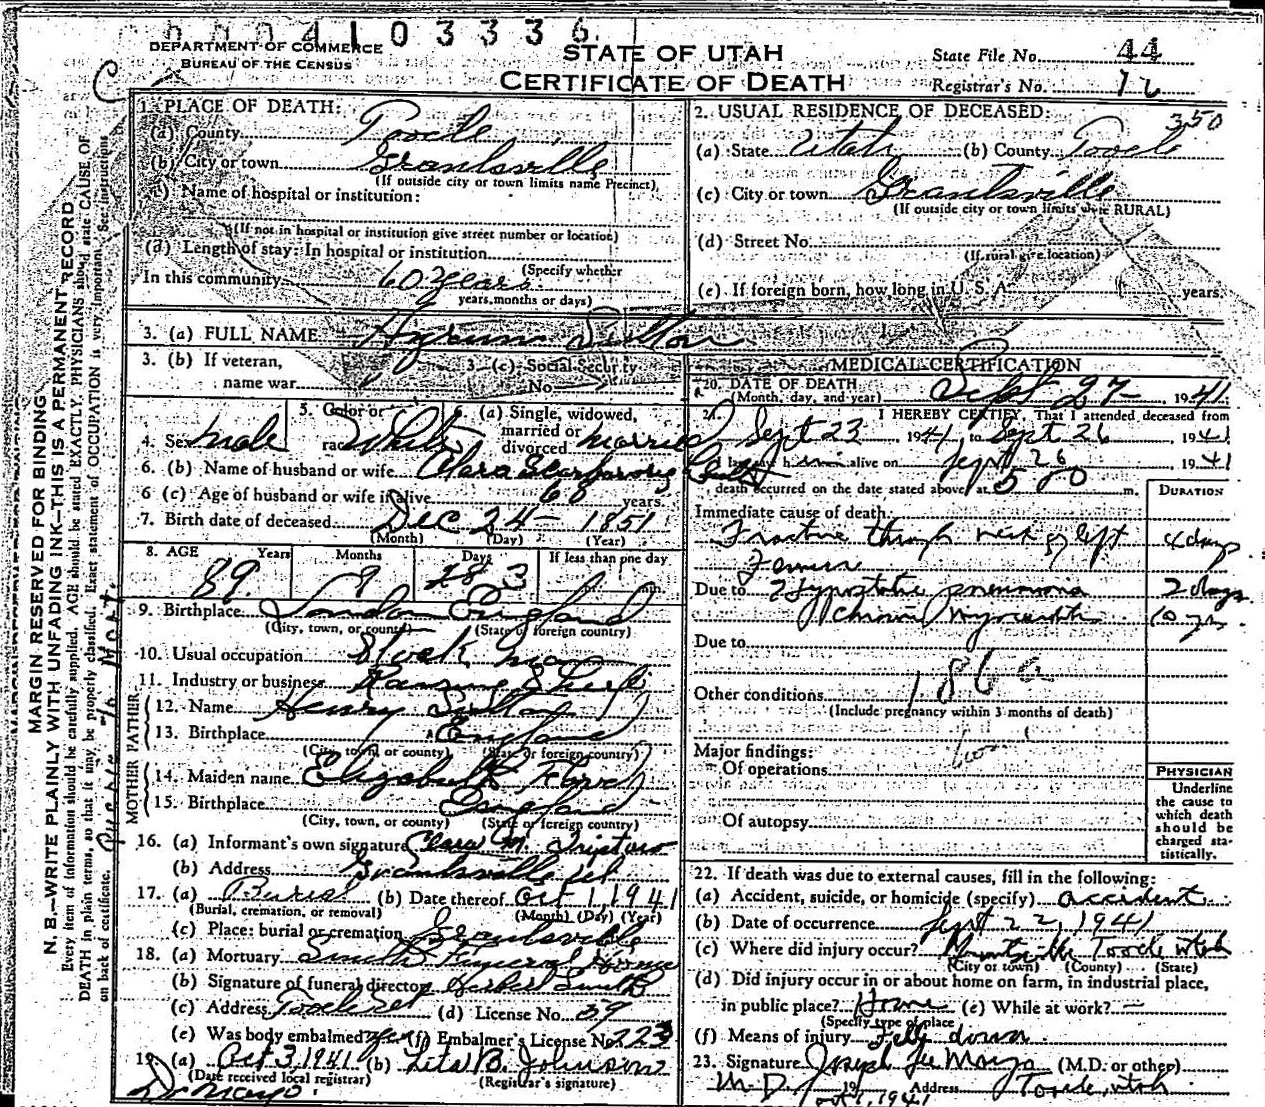 0 0 0 4 1 0 3 3 3 6.
DEPARTMENT OF COMMERCE
BUREAU OF THE CENSUS
STATE OF UTAH
CERTIFICATE OF DEATH
State File No. 44
Registrar's No. 12
MARGIN RESERVED FOR BINDING
N. B.—WRITE PLAINLY WITH UNFADING INK—THIS IS A PERMANENT RECORD
Every item of information should be carefully supplied. AGE should be stated EXACTLY. PHYSICIANS should state CAUSE OF
DEATH in plain terms, so that it may be properly classified. Exact statement of OCCUPATION is very important. See instructions
on back of certificate.
1. PLACE OF DEATH:
(a) County Tooele
(b) City or town Grantsville
(If outside city or town limits name Precinct)
(c) Name of hospital or institution:
(If not in hospital or institution give street number or location)
(d) Length of stay: In hospital or institution
(Specify whether
In this community 60 years
years, months or days)
2. USUAL RESIDENCE OF DECEASED: 350
(a) State Utah (b) County Tooele
(c) City or town Grantsville
(If outside city or town limits write RURAL)
(d) Street No.
(If rural give location)
(e) If foreign born, how long in U. S. A. years.
3. (a) FULL NAME Hyrum Sutton
3. (b) If veteran,
name war
3. (c) Social Security
No.
4. Sex male
5. Color or
race White
6. (a) Single, widowed,
married or
divorced married
6. (b) Name of husband or wife Clara
6 (c) Age of husband or wife if alive 60 years.
7. Birth date of deceased Dec 24 - 1851
(Month) (Day) (Year)
8. AGE Years Months Days If less than one day
89 9 3
9. Birthplace London England
(City, town, or county) (State or foreign country)
10. Usual occupation Stock man
11. Industry or business Raising Sheep
FATHER
12. Name Henry Sutton
13. Birthplace England
(City, town, or county) (State or foreign country)
MOTHER
14. Maiden name Elizabeth
15. Birthplace England
(City, town, or county) (State or foreign country)
16. (a) Informant's own signature Clara M.
(b) Address Grantsville Ut
17. (a) Burial (b) Date thereof Oct 1, 1941
(Burial, cremation, or removal) (Month) (Day) (Year)
(c) Place: burial or cremation Grantsville
18. (a) Mortuary Smith Funeral Home
(b) Signature of funeral director Herbert Smith
(c) Address Tooele Ut (d) License No. 39
(e) Was body embalmed yes (f) Embalmer's License No. 223
19. (a) Oct 3, 1941 (b) Lital B. Johnson
(Date received local registrar) (Registrar's signature)
Dr Mayo.
MEDICAL CERTIFICATION
20. DATE OF DEATH
(Month, day, and year) Sept 27 - 1941
21. I HEREBY CERTIFY, That I attended deceased from
Sept 23, 1941, to Sept 26, 1941
I last saw him alive on Sept 26, 1941
death occurred on the date stated above at 500 m.
DURATION
Immediate cause of death
Fracture through neck of left 4 days
Femur
Due to Hypostatic pneumonia 2 days
Chronic myocarditis 10 yrs.
Due to
186 a
Other conditions
(Include pregnancy within 3 months of death)
Major findings:
Of operations
Of autopsy
PHYSICIAN
Underline
the cause to
which death
should be
charged sta-
tistically.
22. If death was due to external causes, fill in the following:
(a) Accident, suicide, or homicide (specify) accident
(b) Date of occurrence Sept 22, 1941
(c) Where did injury occur? Grantsville Tooele Utah
(City or town) (County) (State)
(d) Did injury occur in or about home on farm, in industrial place,
in public place? Home (e) While at work? —
(Specify type of place
(f) Means of injury Fell down
23. Signature Joseph Lee Mayo (M.D. or other)
M.D. 19 Address Tooele, Utah
Oct 1, 1941